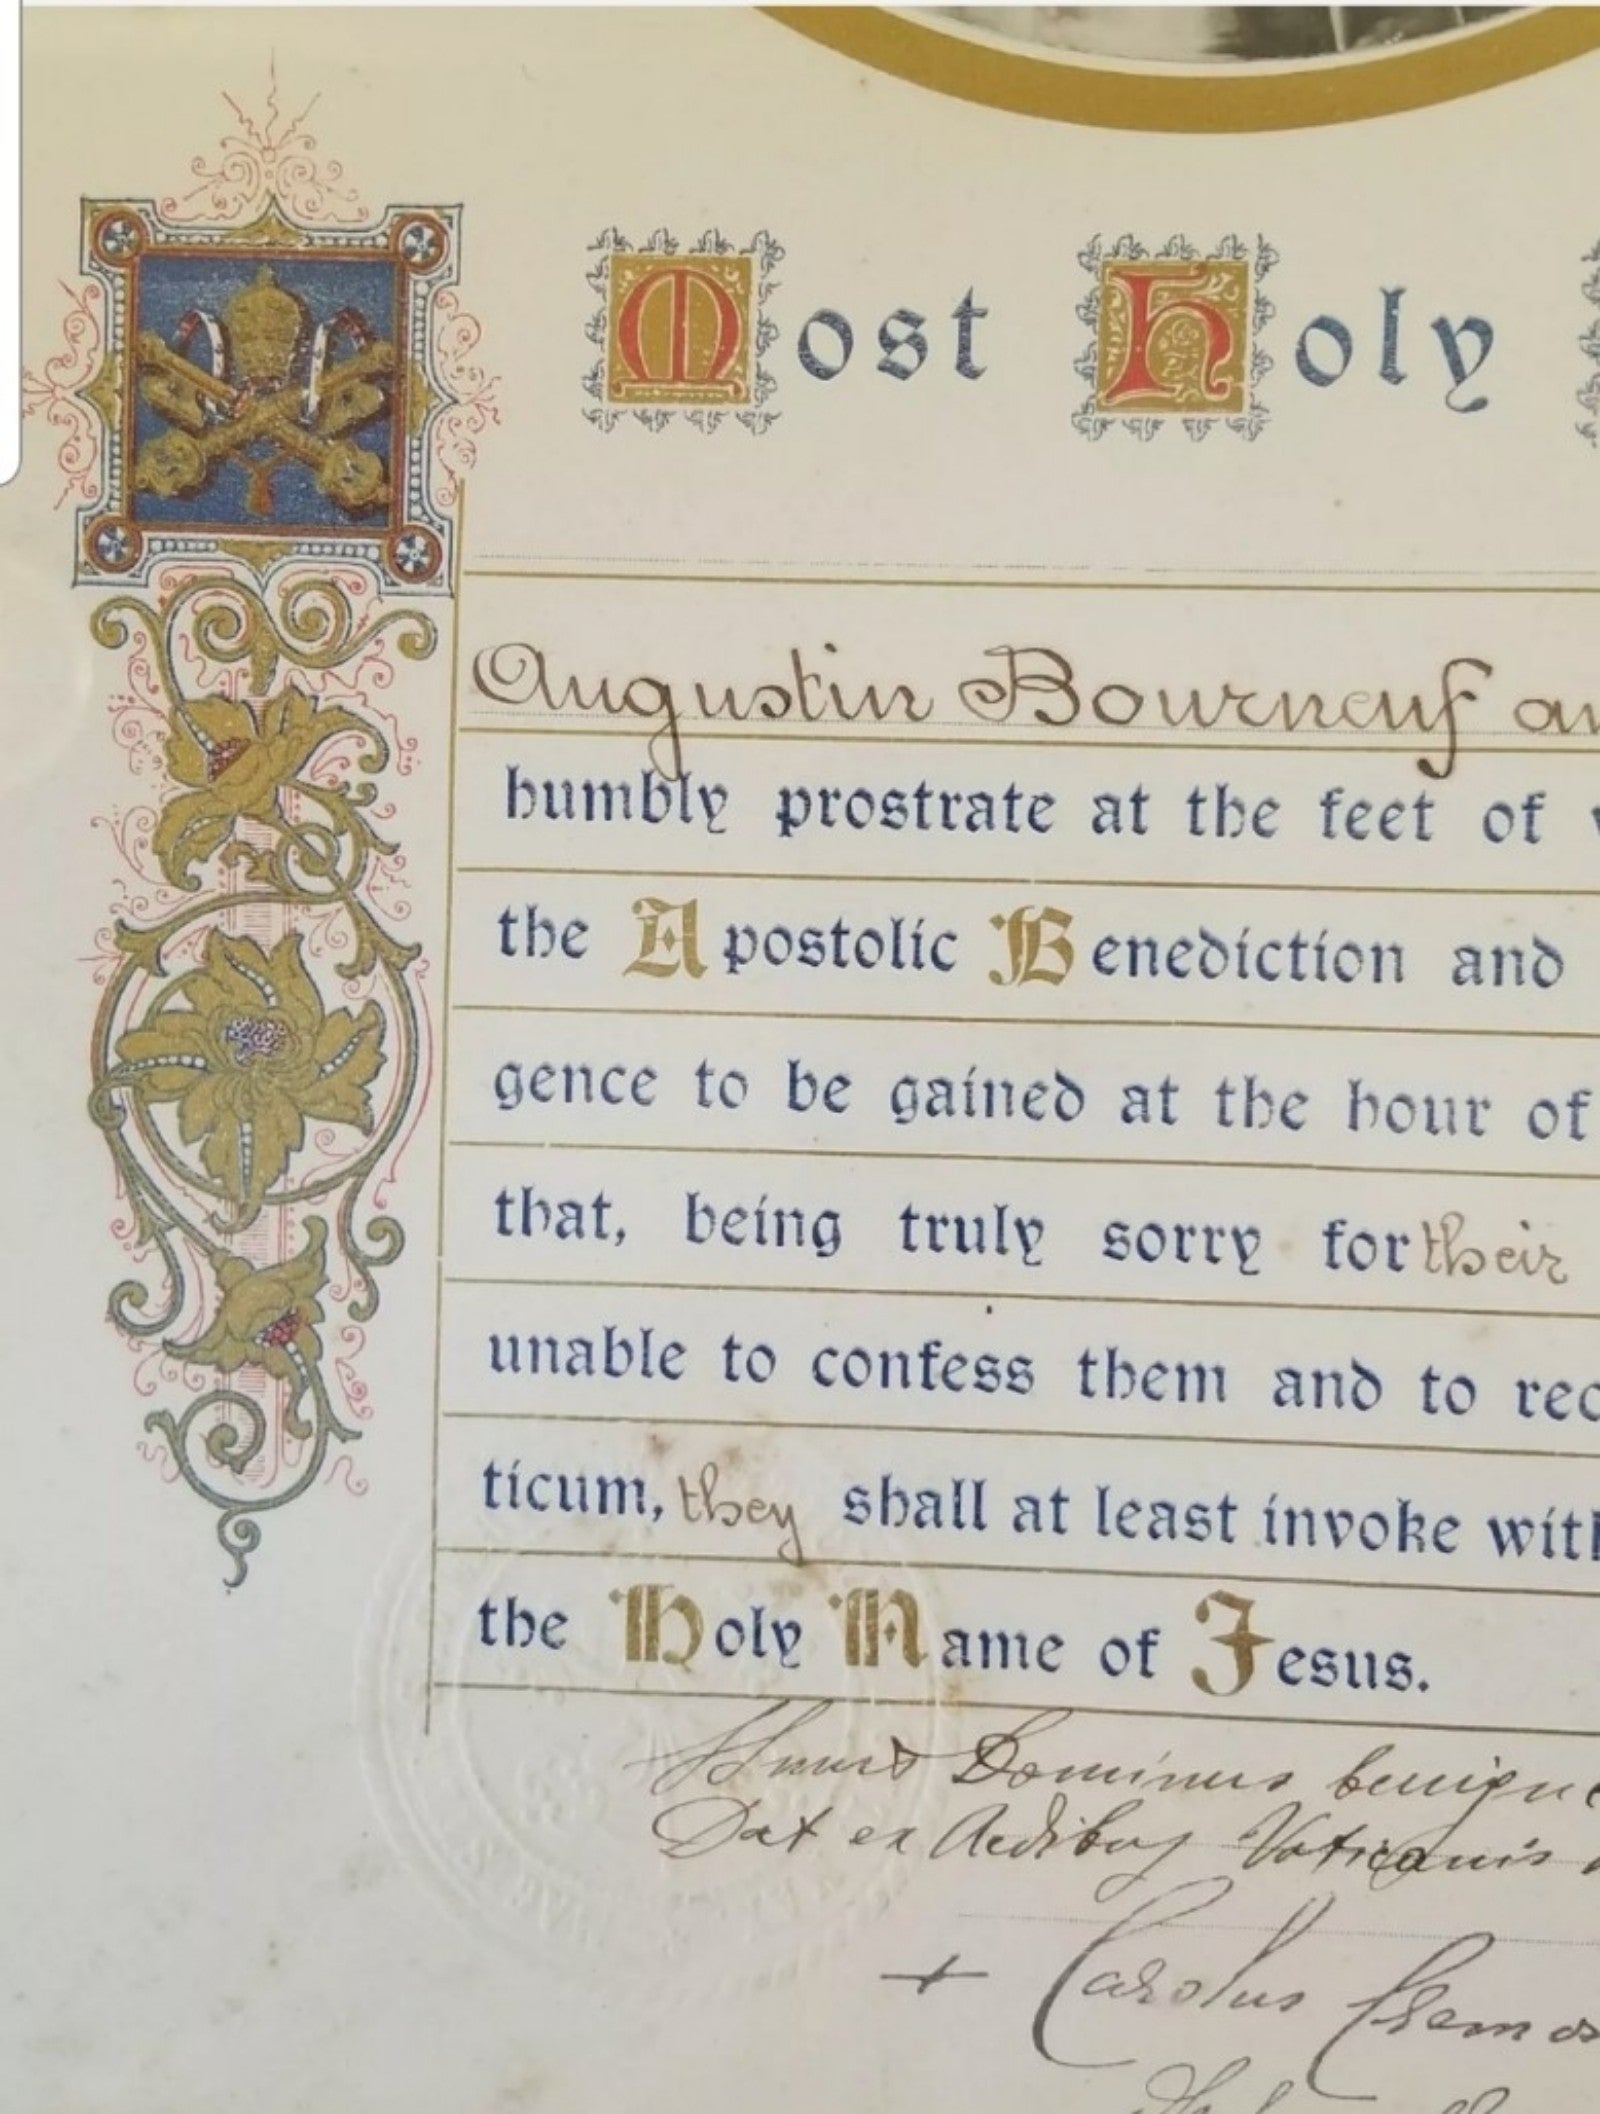 Most Holy
Augustin Bourneuf an
humbly prostrate at the feet of
the Apostolic Benediction and
gence to be gained at the hour of
that, being truly sorry for their
unable to confess them and to rec
ticum, they shall at least invoke with
the Holy Name of Jesus.
Dominus benigne
Dat ex Aedibus Vaticanis
+ Carolus